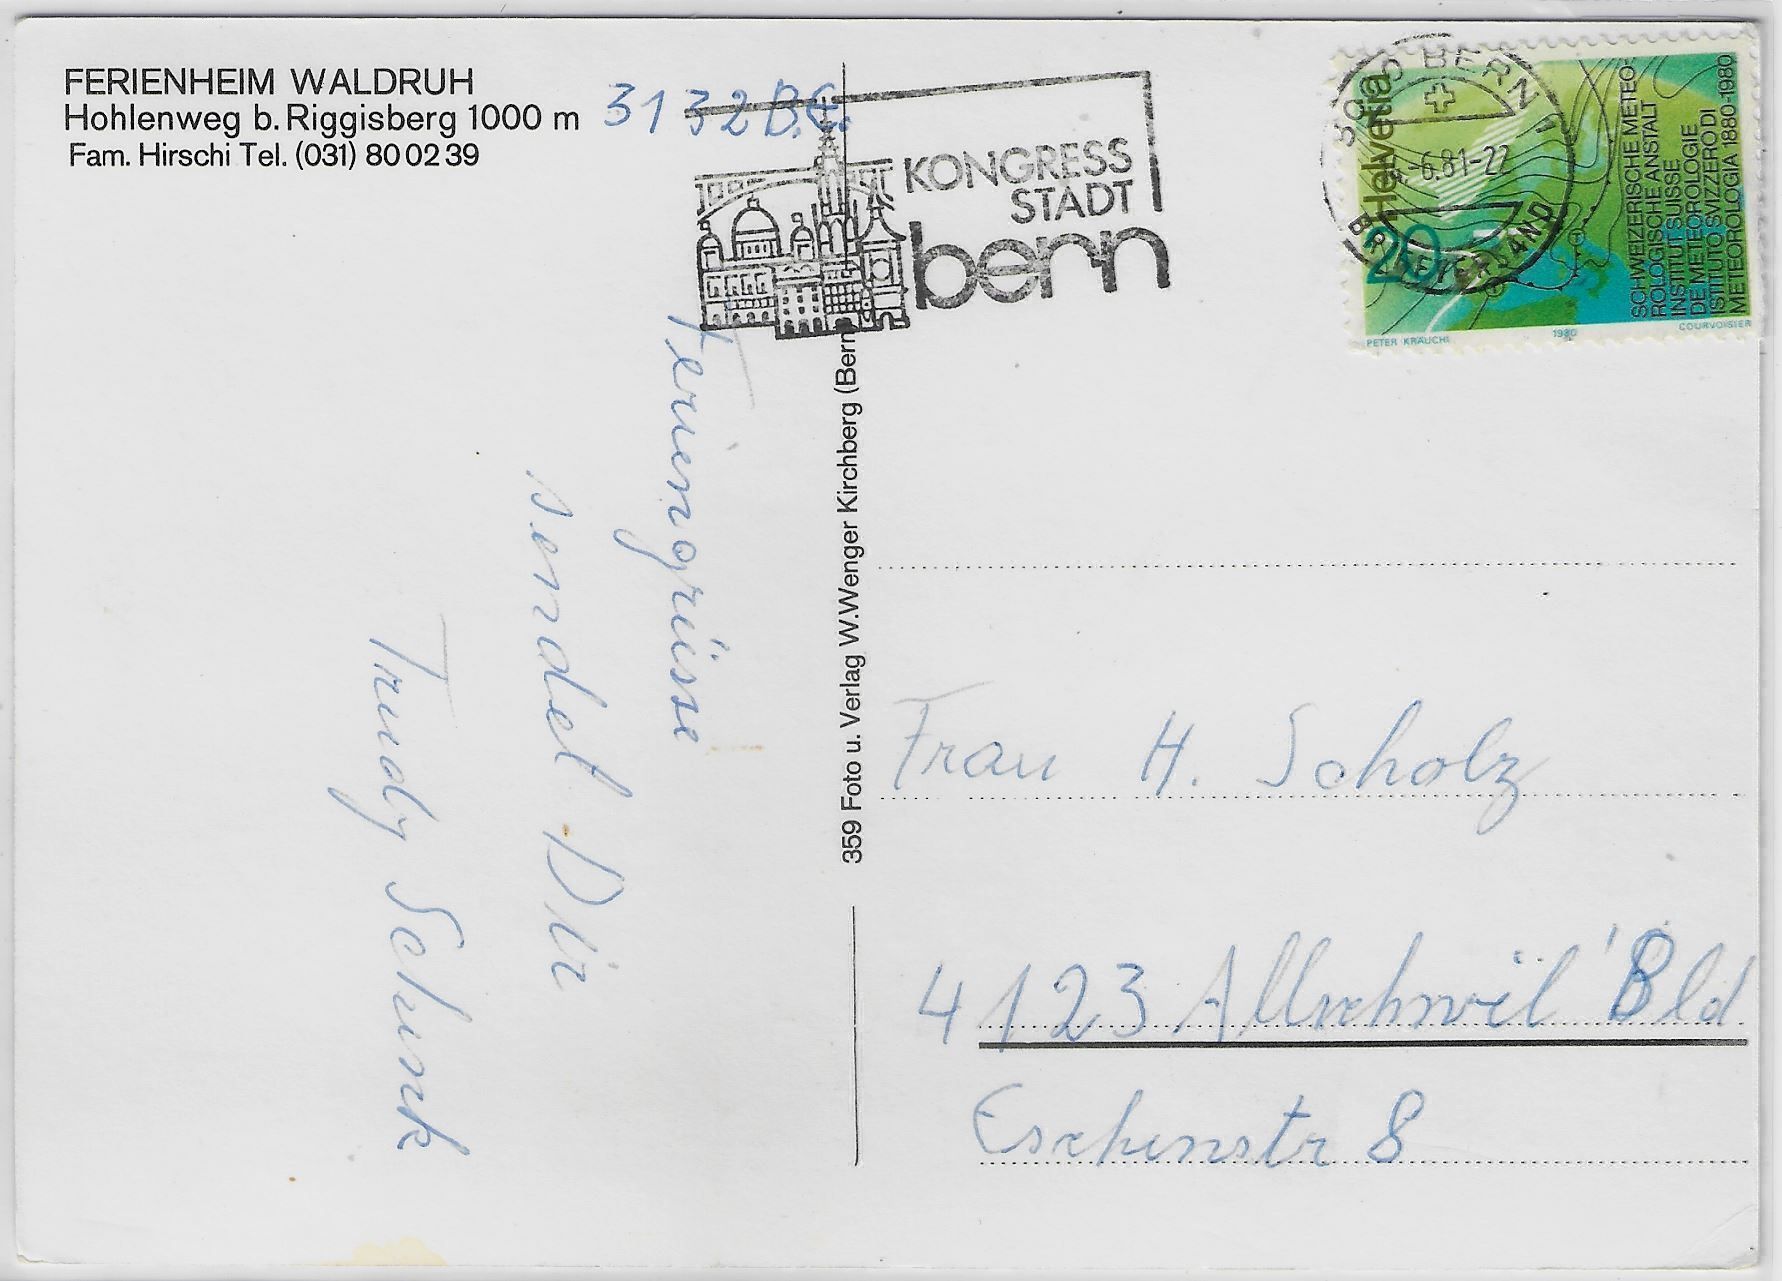 FERIENHEIM WALDRUH
Hohlenweg b. Riggisberg 1000 m
Fam. Hirschi Tel. (031) 80 02 39
3132 B.E.
KONGRESS
STADT
bern
BERN
-6.81-22
Helvetia
20
SCHWEIZERISCHE METEO-
ROLOGISCHE ANSTALT
INSTITUT SUISSE
DE METEOROLOGIE
ISTITUTO SVIZZERO DI
METEOROLOGIA 1880-1980
PETER KRÄUCHI
1980
COURVOISIER
Feriengrüsse
sendet Dir
Trudy Schenk
359 Foto u. Verlag W. Wenger Kirchberg (Bern
Frau H. Scholz
4123 Allschwil Bld
Eschenstr 8